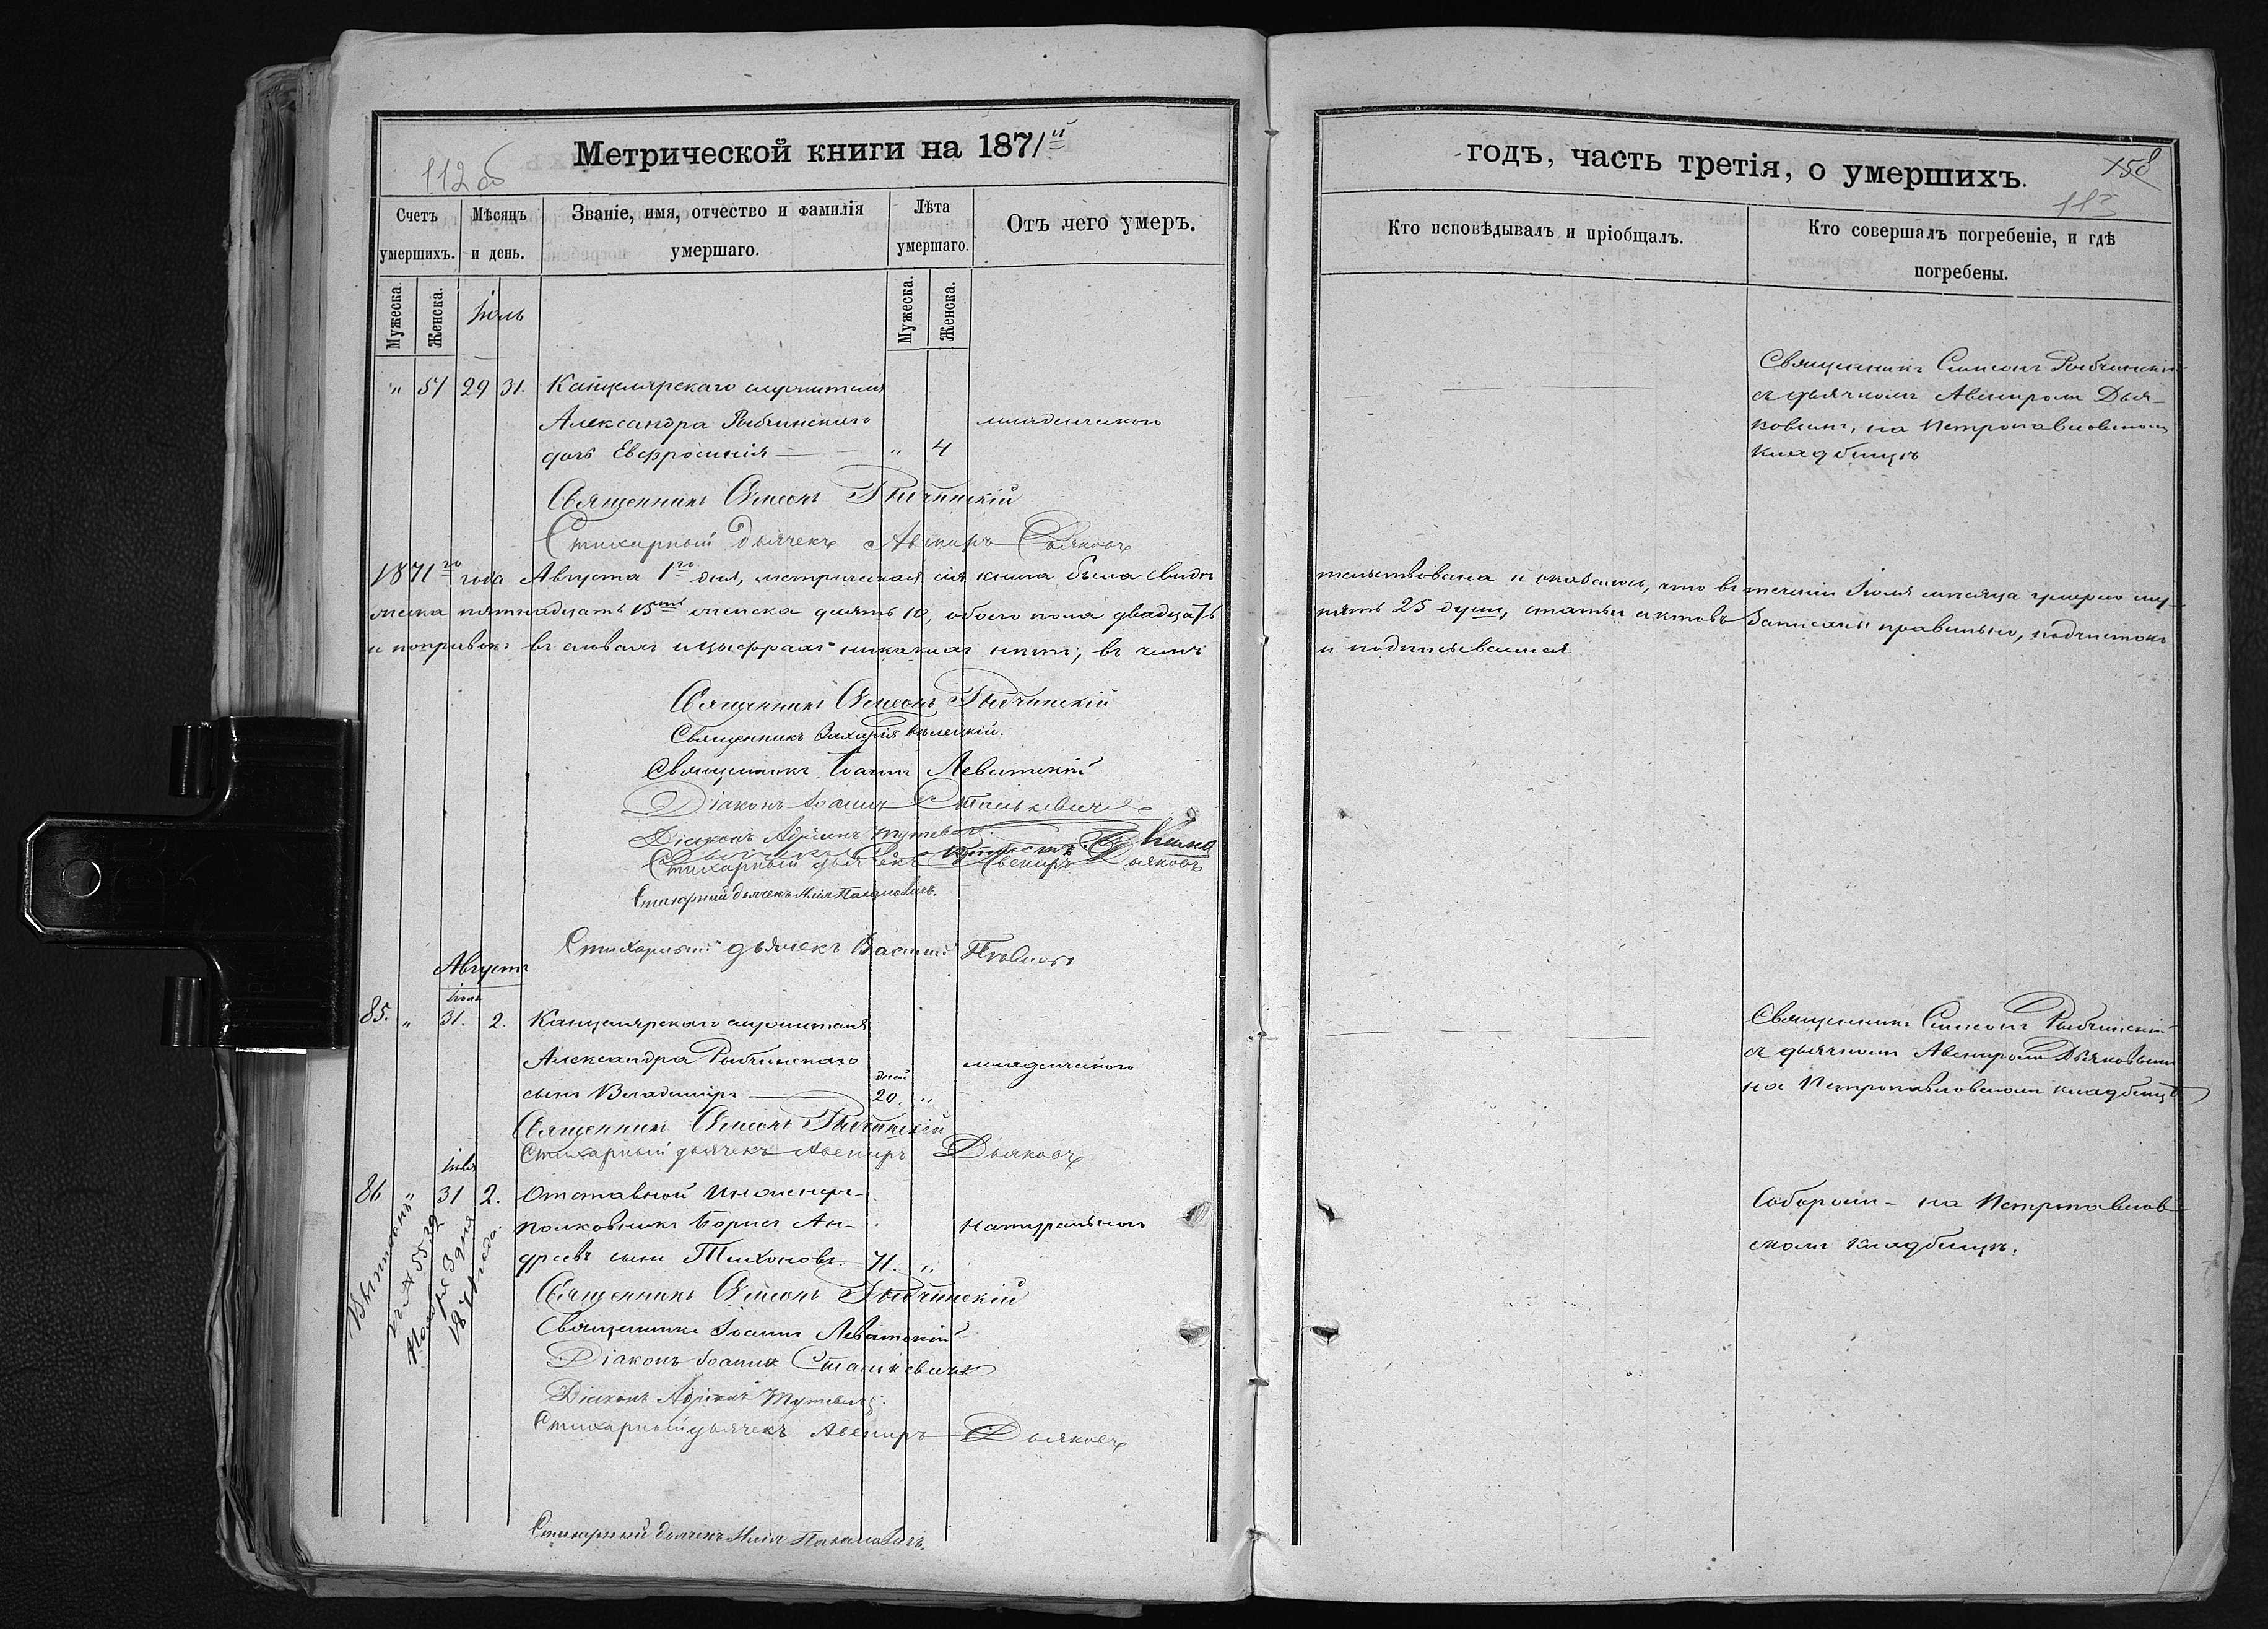 Метрической книги на 1871й
112 об
Счетъ умершихъ.
Мѣсяцъ и день.
Званіе, имя, отчество и фамилія умершаго.
Лѣта умершаго.
Отъ чего умеръ.
Мужеска.
Женска.
Мужеска.
Женска.
Іюль
" 51 29 31. Канцелярскаго служителя
Александра Рыбчинскаго младенческаго
дочь Евфросинія — " 4
Священникъ Симеонъ Рыбчинскій
Стихарный дьячекъ Авениръ Дьяковъ
1871го года Августа 1го дня, метрическая сія книга была свидѣ
жеска пятнадцать 15ть женска десять 10, обоего пола двадцать
и поправокъ въ словахъ и цыфрахъ никакихъ нѣтъ, въ чемъ
Священникъ Симеонъ Рыбчинскій
Священникъ Захарія Бѣлецкій.
Священникъ Іоаннъ Левитскій
Діаконъ Іоаннъ Станькевичъ
Діаконъ Адріанъ
Стихарный дьячекъ Авениръ Дьяковъ
Стихарный дьячекъ Илія
Стихарный дьячекъ Василій
Августъ
Іюль
85. " 31. 2. Канцелярскаго служителя
Александра Рыбчинскаго младенческаго
дней
сынъ Владиміръ — 20. "
Священникъ Симеонъ Рыбчинскій
Стихарный дьячекъ Авениръ Дьяковъ
Іюля
86 " 31 2. Отставной Инженеръ-
полковникъ Борисъ Ан- натуральною
дреевъ сынъ Тихоновъ. 71. "
Священникъ Симеонъ Рыбчинскій
Священникъ Іоаннъ Левитскій
Діаконъ Іоаннъ Станькевичъ
Діаконъ Адріанъ
Стихарный дьячекъ Авениръ Дьяковъ
Стихарный дьячекъ Илія
№ 5539
Ноября 3 дня
1871 года.
годъ, часть третія, о умершихъ.
158
113
Кто исповѣдывалъ и пріобщалъ.
Кто совершалъ погребеніе, и гдѣ погребены.
Священникъ Симеонъ Рыбчинскій
съ дьячкомъ Авениромъ Дья-
ковымъ, на Петропавловскомъ
кладбищѣ
тельствована и оказалось, что въ теченіи Іюля мѣсяца умерло му-
пять 25 душъ, статьи актовъ записаны правильно, подчистокъ
и подписываемся
Священникъ Симеонъ Рыбчинскій
съ дьячкомъ Авениромъ Дьяковымъ
на Петропавловскомъ кладбищѣ
Соборомъ - на Петропавлов-
скомъ кладбищѣ.